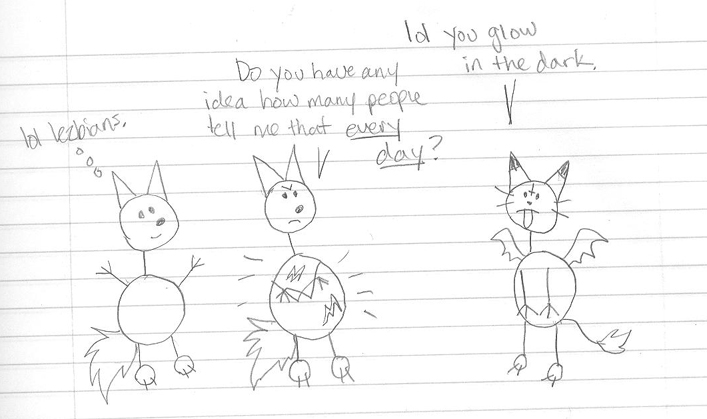 lol lezbians.
Do you have any
idea how many people
tell me that every
day?
lol you glow
in the dark.